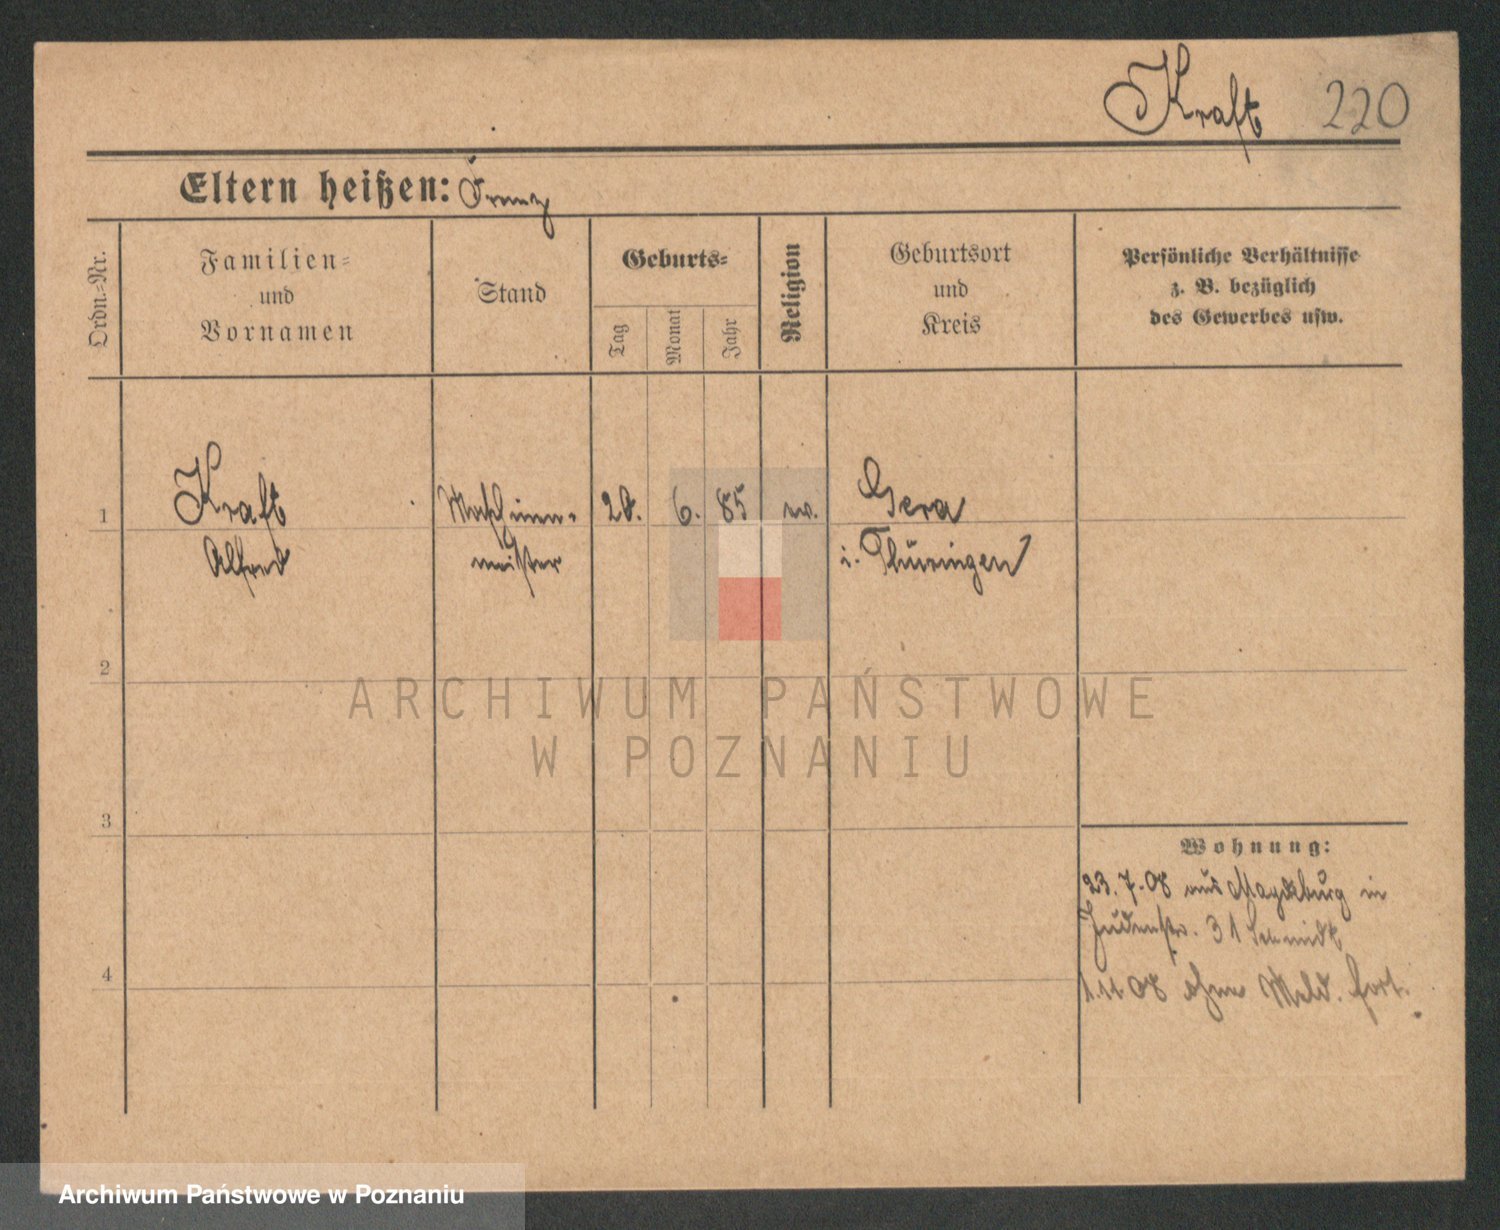 Kraft 220
Eltern heißen: Franz
Ordn.=Nr.
Familien=
und
Vornamen
Stand
Geburts=
Tag
Monat
Jahr
Religion
Geburtsort
und
Kreis
Persönliche Verhältnisse
z. B. bezüglich
des Gewerbes usw.
1
Kraft
Alfred
Maschinen-
meister
28. 6. 85
ev.
Gera
i. Thüringen
2
ARCHIWUM PAŃSTWOWE
W POZNANIU
3
Wohnung:
23.7.08 aus Magdeburg in
Judenstr. 31 Schmidt
4
1.11.08 ohne Meld. fort.
Archiwum Państwowe w Poznaniu